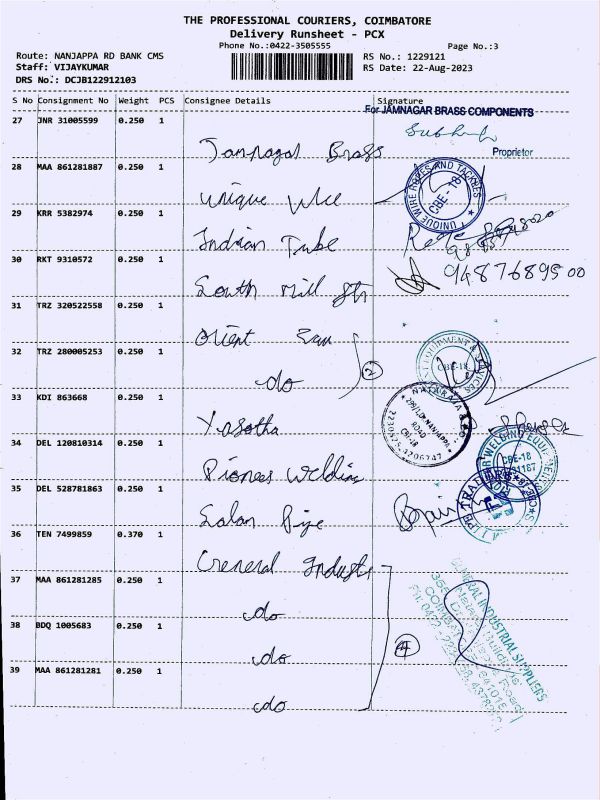 THE PROFESSIONAL COURIERS, COIMBATORE
Delivery Runsheet - PCX
Phone No.:0422-3505555
Page No.:3
Route: NANJAPPA RD BANK CMS
RS No.: 1229121
Staff: VIJAYKUMAR
RS Date: 22-Aug-2023
DRS No.: DCJB122912103
S No Consignment No Weight PCS Consignee Details Signature
For JAMNAGAR BRASS COMPONENTS
27 JNR 31005599 0.250 1
Proprietor
Jamnagar Brass
28 MAA 861281887 0.250 1
UNIQUE WIRE ROPES AND TACKLES
CBE-18
Unique Wire
29 KRR 5382974 0.250 1
Indian Tube
30 RKT 9310572 0.250 1
9487689500
South Mill Str
31 TRZ 320522558 0.250 1
Orient
32 TRZ 280005253 0.250 1
EQUIPMENT & SERVICES
CBE-18
do
2
33 KDI 863668 0.250 1
NATARAJA & CO
NANJAPPA
ROAD
CBE-18
Yasotha
34 DEL 120810314 0.250 1
WELDING EQUIPMENTS
CBE-18
Pioneer Welding
35 DEL 528781863 0.250 1
Salan Pipe
36 TEN 7499859 0.370 1
General Industr
37 MAA 861281285 0.250 1
GENERAL INDUSTRIAL SUPPLIERS
do
38 BDQ 1005683 0.250 1
do
4
39 MAA 861281281 0.250 1
do